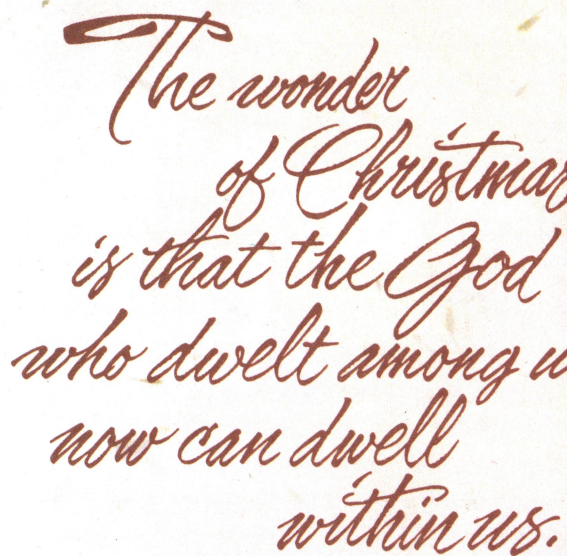 The wonder
of Christmas
is that the God
who dwelt among u
now can dwell
within us.